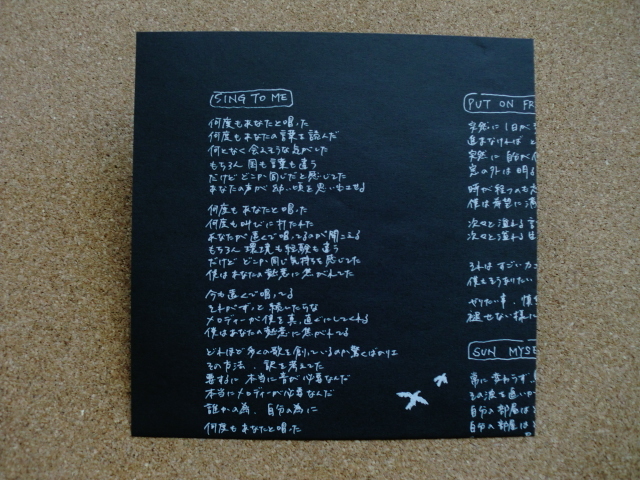 SING TO ME
何度もあなたと唱った
何度もあなたの言葉を読んだ
何となく会えそうな気がした
もちろん 国も言葉も違う
だけど どこか同じだと感じてた
あなたの声が 幼い頃を思い出させる
何度もあなたと唱った
何度も叫びに打たれた
あなたが遠くで唱ってるのが聞こえる
もちろん 環境も経験も違う
だけど どこか同じ気持ちを感じてた
僕はあなたの熱意に焦がれてた
今も遠くで唱ってる
それがずっと続いたらな
メロディーが僕を真っ直ぐにしてくれる
僕はあなたの熱意に焦がれてる
どれほど多くの歌を創っているのか驚くばかりさ
その方法、訳を考えてた
要するに 本当に音が必要なんだ
本当にメロディーが必要なんだ
誰かの為、自分の為に
何度もあなたと唱った
PUT ON FR
突然に 1日が
進まなければ
突然に 自分が
窓の外は 明る
時が経つのも
僕は希望に
次々と溢れる
次々と溢れる
それは すごい
僕もそうありたい
やりたい事、
絶せない様に
SUN MYSE
常に変わらず
その波を追いか
自分の部屋は
自分の部屋は